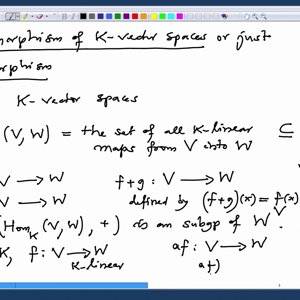 morphism of K-vector spaces or just
orphism
K-vector spaces
(V, W) = the set of all K-linear ⊆
maps from V into W
V → W f+g : V → W
V → W defined by (f+g)(x) = f(x)
(Hom_K(V, W), +) is an subgp of W^V.
K, f : V → W af : V → W
K-linear af)